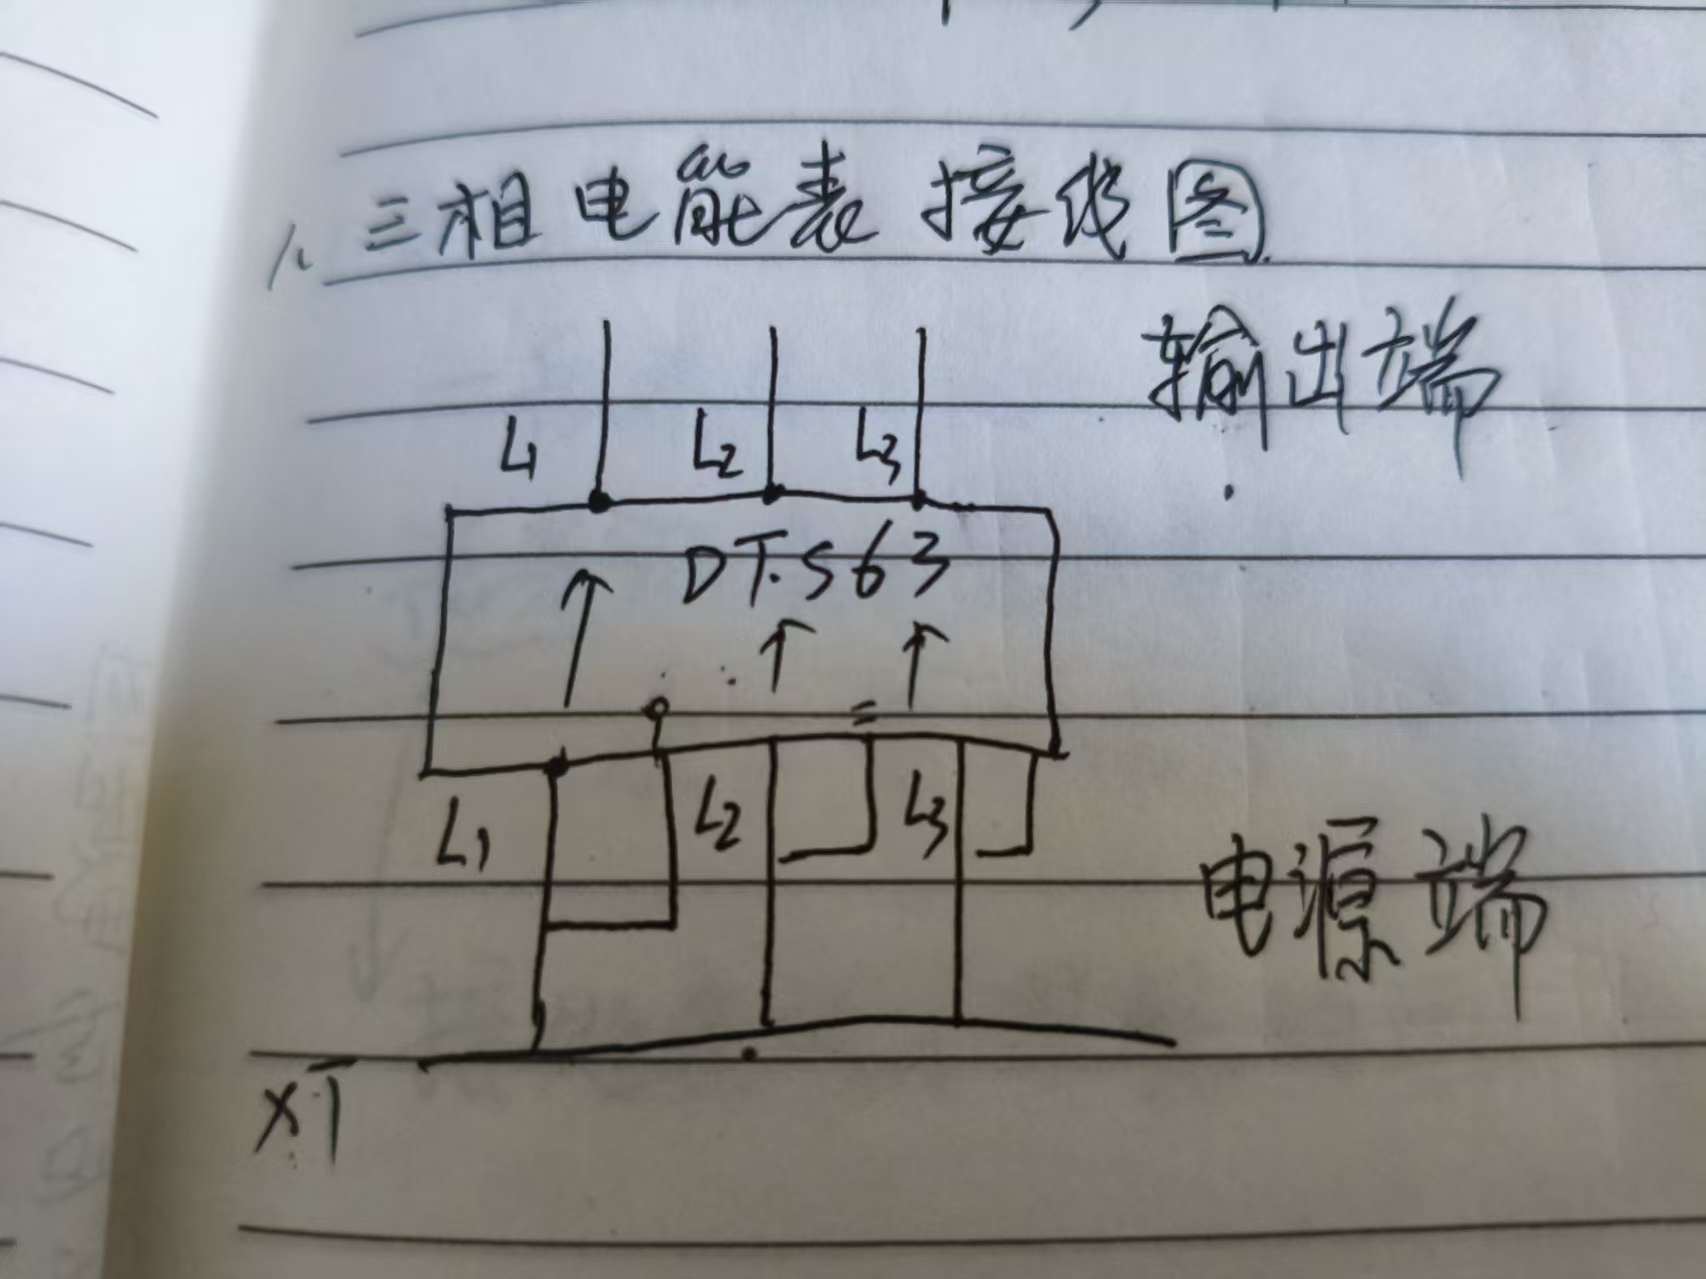 1、三相电能表接线图
输出端
L1 L2 L3
DTS63
L1 L2 L3
电源端
XT